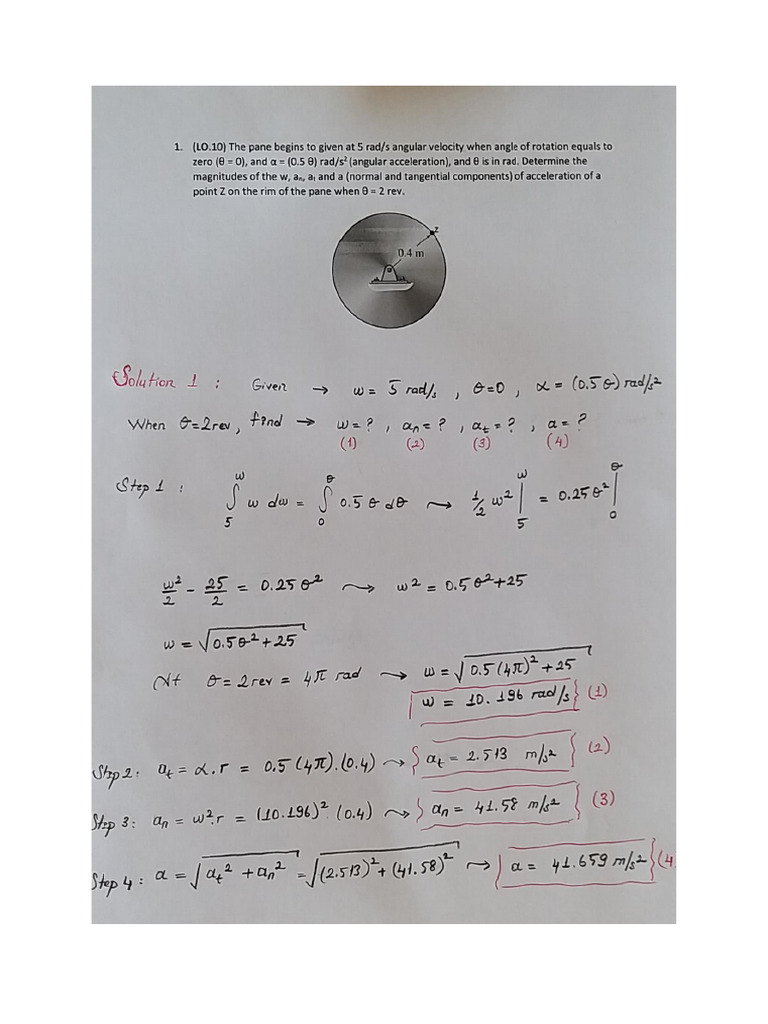 1. (LO.10) The pane begins to given at 5 rad/s angular velocity when angle of rotation equals to
zero (θ = 0), and α = (0.5 θ) rad/s² (angular acceleration), and θ is in rad. Determine the
magnitudes of the w, aₙ, aₜ and a (normal and tangential components) of acceleration of a
point Z on the rim of the pane when θ = 2 rev.
z
0.4 m
Solution 1 : Given → w = 5 rad/s , θ=0 , α = (0.5 θ) rad/s²
When θ=2rev, find → w=? , aₙ=? , aₜ=? , a=?
(1) (2) (3) (4)
Step 1 : ∫₅ʷ w dw = ∫₀^θ 0.5 θ dθ → 1/2 w² |₅ʷ = 0.25θ² |₀^θ
w²/2 - 25/2 = 0.25 θ² → w² = 0.5θ²+25
w = √(0.5θ²+25)
At θ = 2rev = 4π rad → w = √(0.5(4π)²+25)
w = 10.196 rad/s (1)
Step 2: aₜ = α.r = 0.5(4π).(0.4) → aₜ = 2.513 m/s² (2)
Step 3: aₙ = w².r = (10.196)².(0.4) → aₙ = 41.58 m/s² (3)
Step 4: a = √(aₜ² + aₙ²) = √((2.513)²+(41.58)²) → a = 41.659 m/s² (4